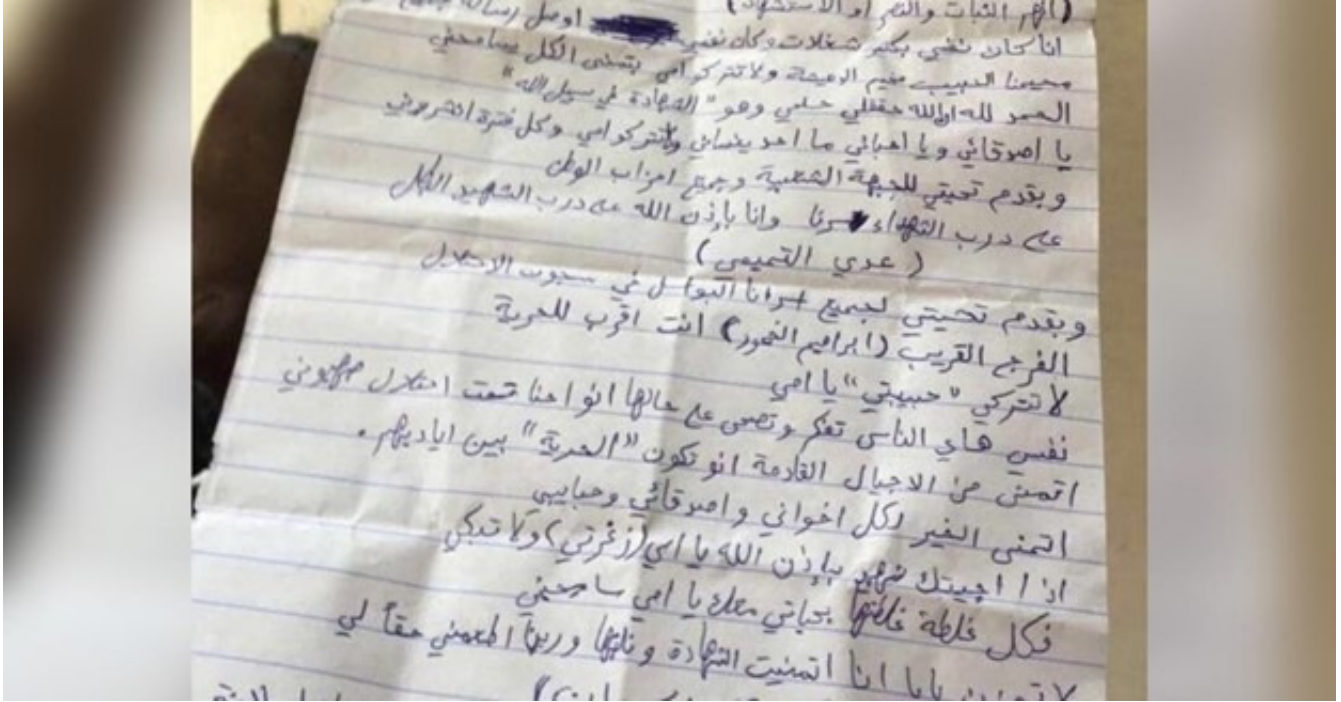 (اللهم الثبات والنصر او الاستشهاد)
انا كان نفسي بكثير شغلات وكان نفسي اوصل رسالة
مخيمنا الحبيب مخيم الدهيشة ولا تتركو امي بتمنى الكل يسامحني
الحمد لله الله حققلي حلمي وهو "الشهادة في سبيل الله"
يا اصدقائي ويا احبائي ما احد ينساني ولا تتركو امي وكل فترة
وبقدم تحيتي للجبهة الشعبية وجميع احزاب الوطن
على درب الشهداء سرنا وانا بإذن الله على درب الشهيد البطل
(عدي التميمي)
وبقدم تحيتي لجميع اسرانا البواسل في سجون الاحتلال
الفرج القريب (ابراهيم) انت اقرب للحرية
لا تتركي "حبيبتي" يا امي
نفسي هاي الناس تفكر وتصحى على حالها انو احنا تحت احتلال صهيوني
اتمنى من الاجيال القادمة انو تكون "الحرية" بين اياديهم.
اتمنى الخير لكل اخواني واصدقائي وحبايبي
اذا اجيتك شهيد بإذن الله يا امي (زغرتي) ولا تبكي
فكل غلطة غلطتها بحياتي معك يا امي سامحيني
لا تحزن يابا انا اتمنيت الشهادة ونلتها وربنا حقا لي